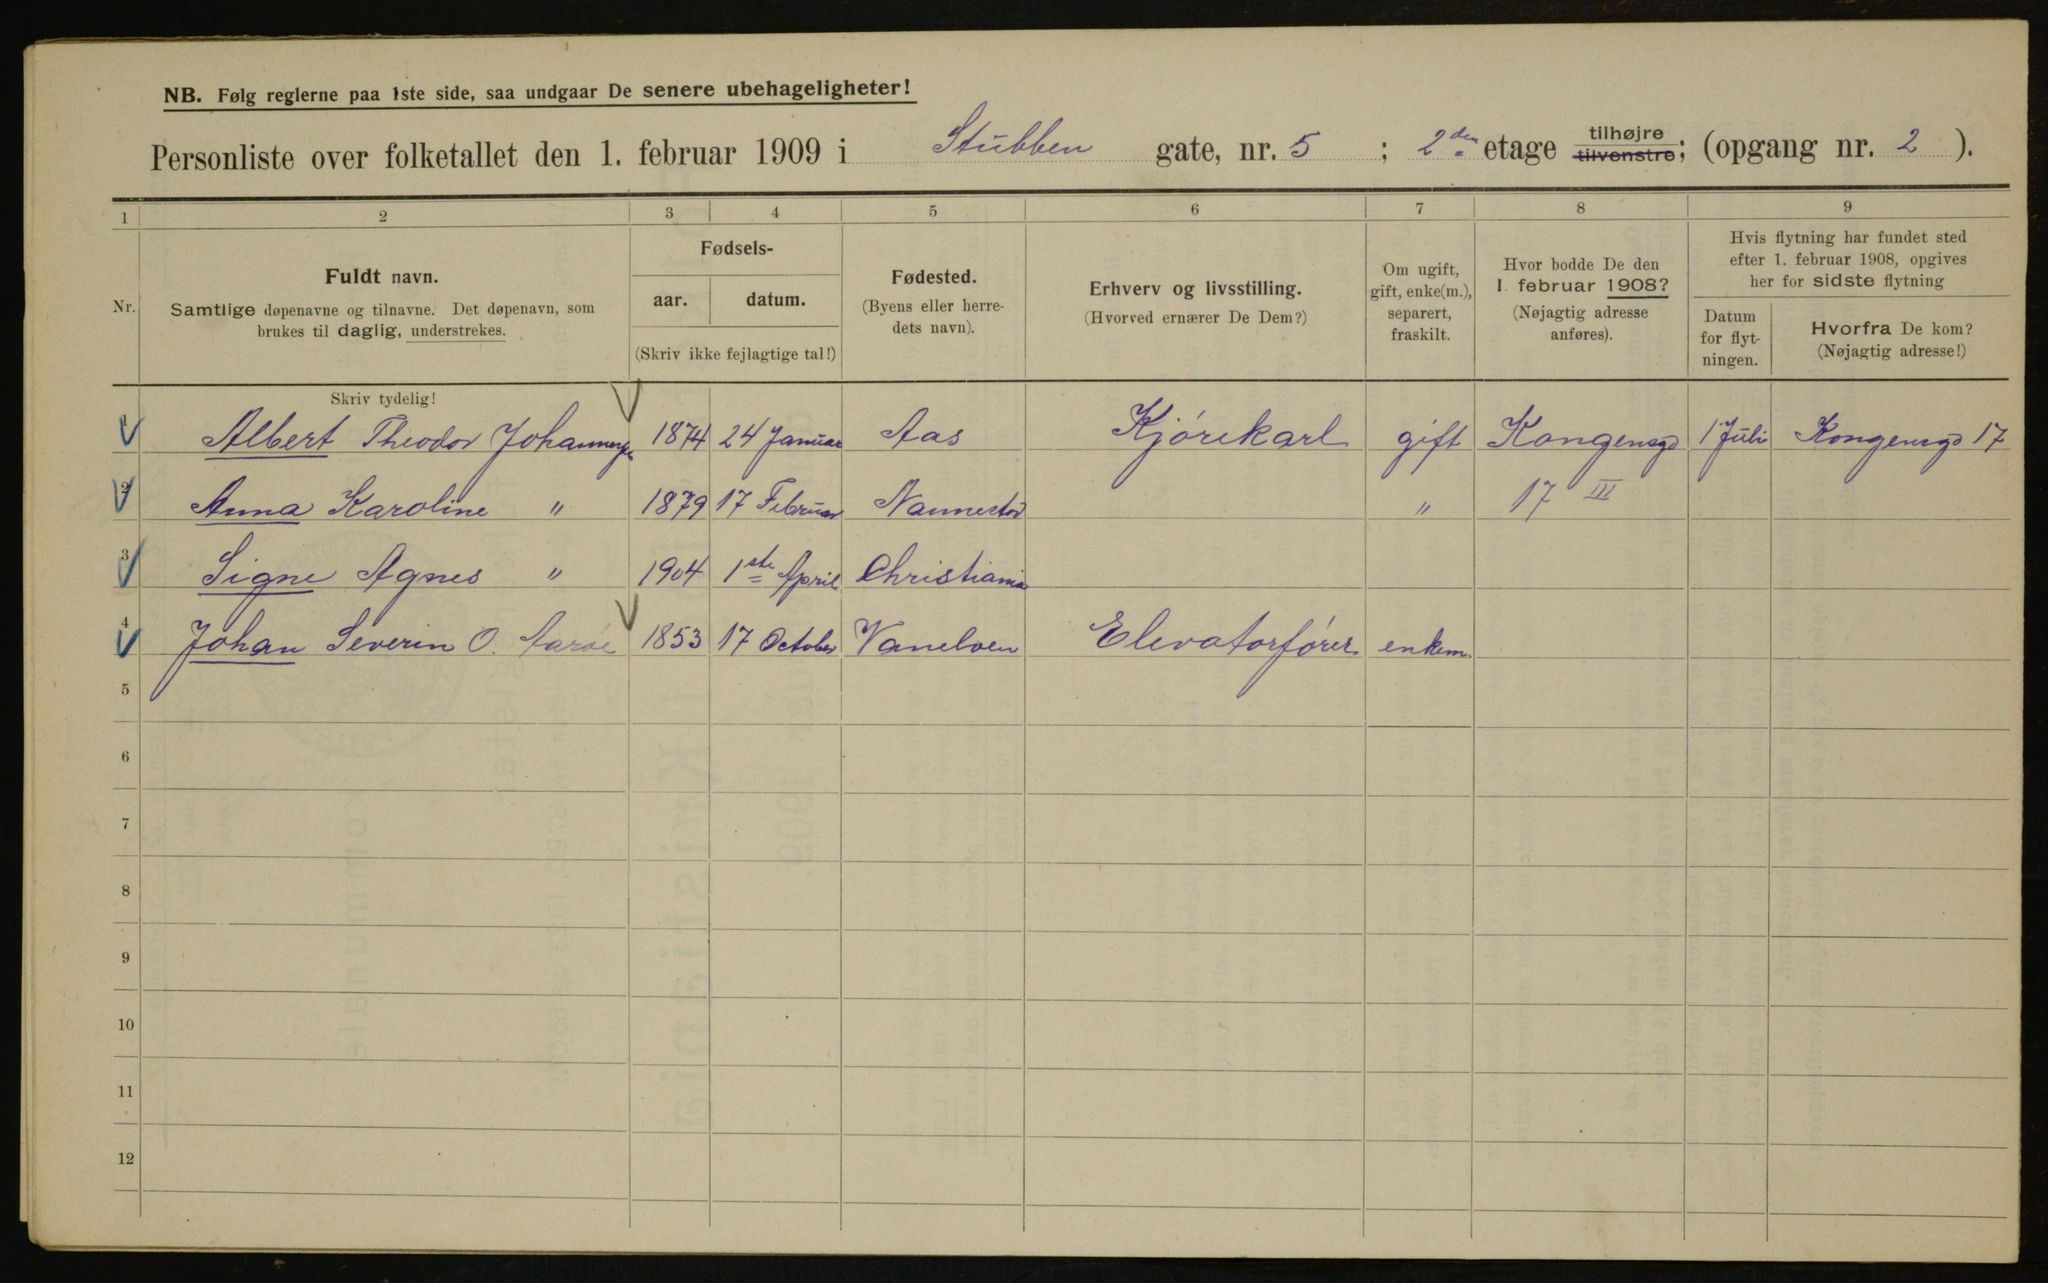 NB. Følg reglerne paa 1ste side, saa undgaar De senere ubehageligheter!
Personliste over folketallet den 1. februar 1909 i Stubben gate, nr. 5 ; 2den etage tilhøjre tilvenstre; (opgang nr. 2 ).
1 2 3 4 5 6 7 8 9
Nr.
Fuldt navn.
Samtlige døpenavne og tilnavne. Det døpenavn, som
brukes til daglig, understrekes.
Fødsels-
aar. datum.
(Skriv ikke fejlagtige tal!)
Fødested.
(Byens eller herre-
dets navn).
Erhverv og livsstilling.
(Hvorved ernærer De Dem?)
Om ugift,
gift, enke(m.),
separert,
fraskilt.
Hvor bodde De den
1. februar 1908?
(Nøjagtig adresse
anføres).
Hvis flytning har fundet sted
efter 1. februar 1908, opgives
her for sidste flytning
Datum
for flyt-
ningen.
Hvorfra De kom?
(Nøjagtig adresse!)
Skriv tydelig!
1 Albert Theodor Johannesen 1874 24 Januar Aas Kjørekarl gift Kongensgd 1 Juli Kongensgd 17
2 Anna Karoline " 1879 17 Februar Nannestad " 17 III
3 Signe Agnes " 1904 1ste April Christiania
4 Johan Severin O. Aarøe 1853 17 October Vanelven Elevatorfører enkem.
5
6
7
8
9
10
11
12